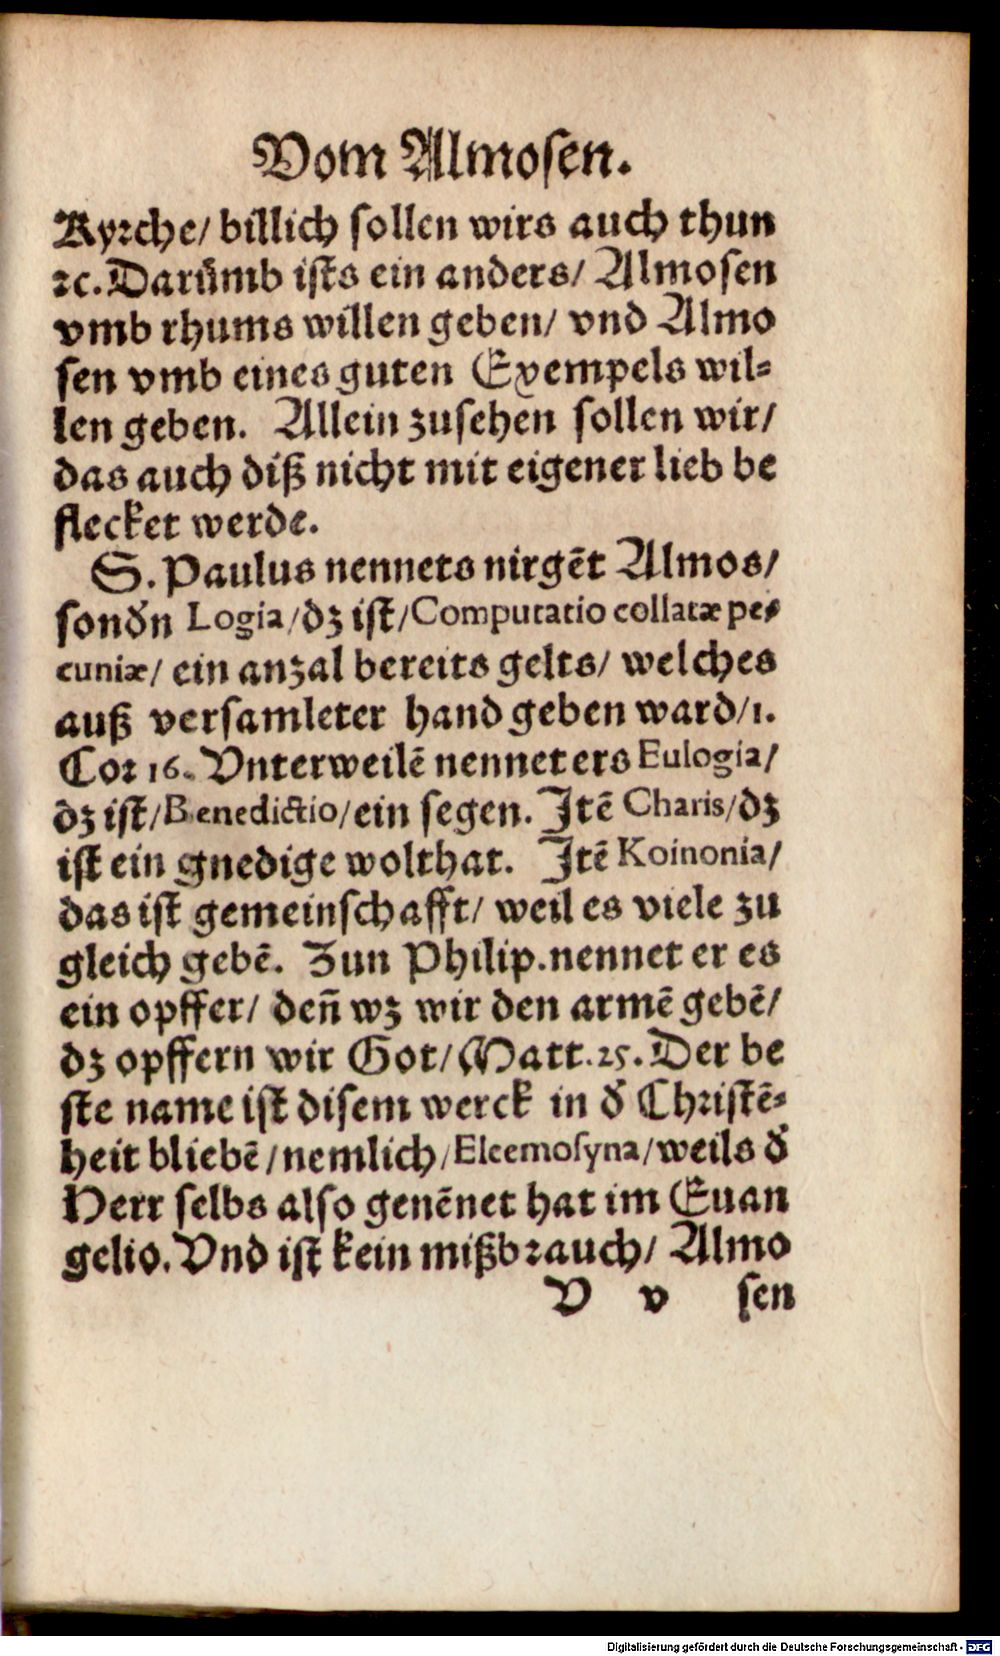 Vom Almosen.
Kyrche/ billich sollen wirs auch thun
ꝛc. Darůmb ists ein anders/ Almosen
vmb rhums willen geben/ vnd Almo
sen vmb eines guten Exempels wil-
len geben. Allein zusehen sollen wir/
das auch diß nicht mit eigener lieb be
flecket werde.
S. Paulus nennets nirgēt Almos/
sonďn Logia/ dz ist/ Computatio collatæ pe-
cuniæ/ ein anzal bereits gelts/ welches
auß versamleter hand geben ward/ 1.
Cor 16. Vnterweilē nennet ers Eulogia/
dz ist/ Benedictio/ ein segen. Itē Charis/ dz
ist ein gnedige wolthat. Itē Koinonia/
das ist gemeinschafft/ weil es viele zu
gleich gebē. Zun Philip. nennet er es
ein opffer/ den̄ wz wir den armē gebē/
dz opffern wir Got/ Matt. 25. Der be
ste name ist disem werck in ď Christē-
heit bliebē/ nemlich/ Eleemosyna/ weils ď
Herr selbs also genēnet hat im Euan
gelio. Vnd ist kein mißbrauch/ Almo
V v sen
Digitalisierung gefördert durch die Deutsche Forschungsgemeinschaft - DFG